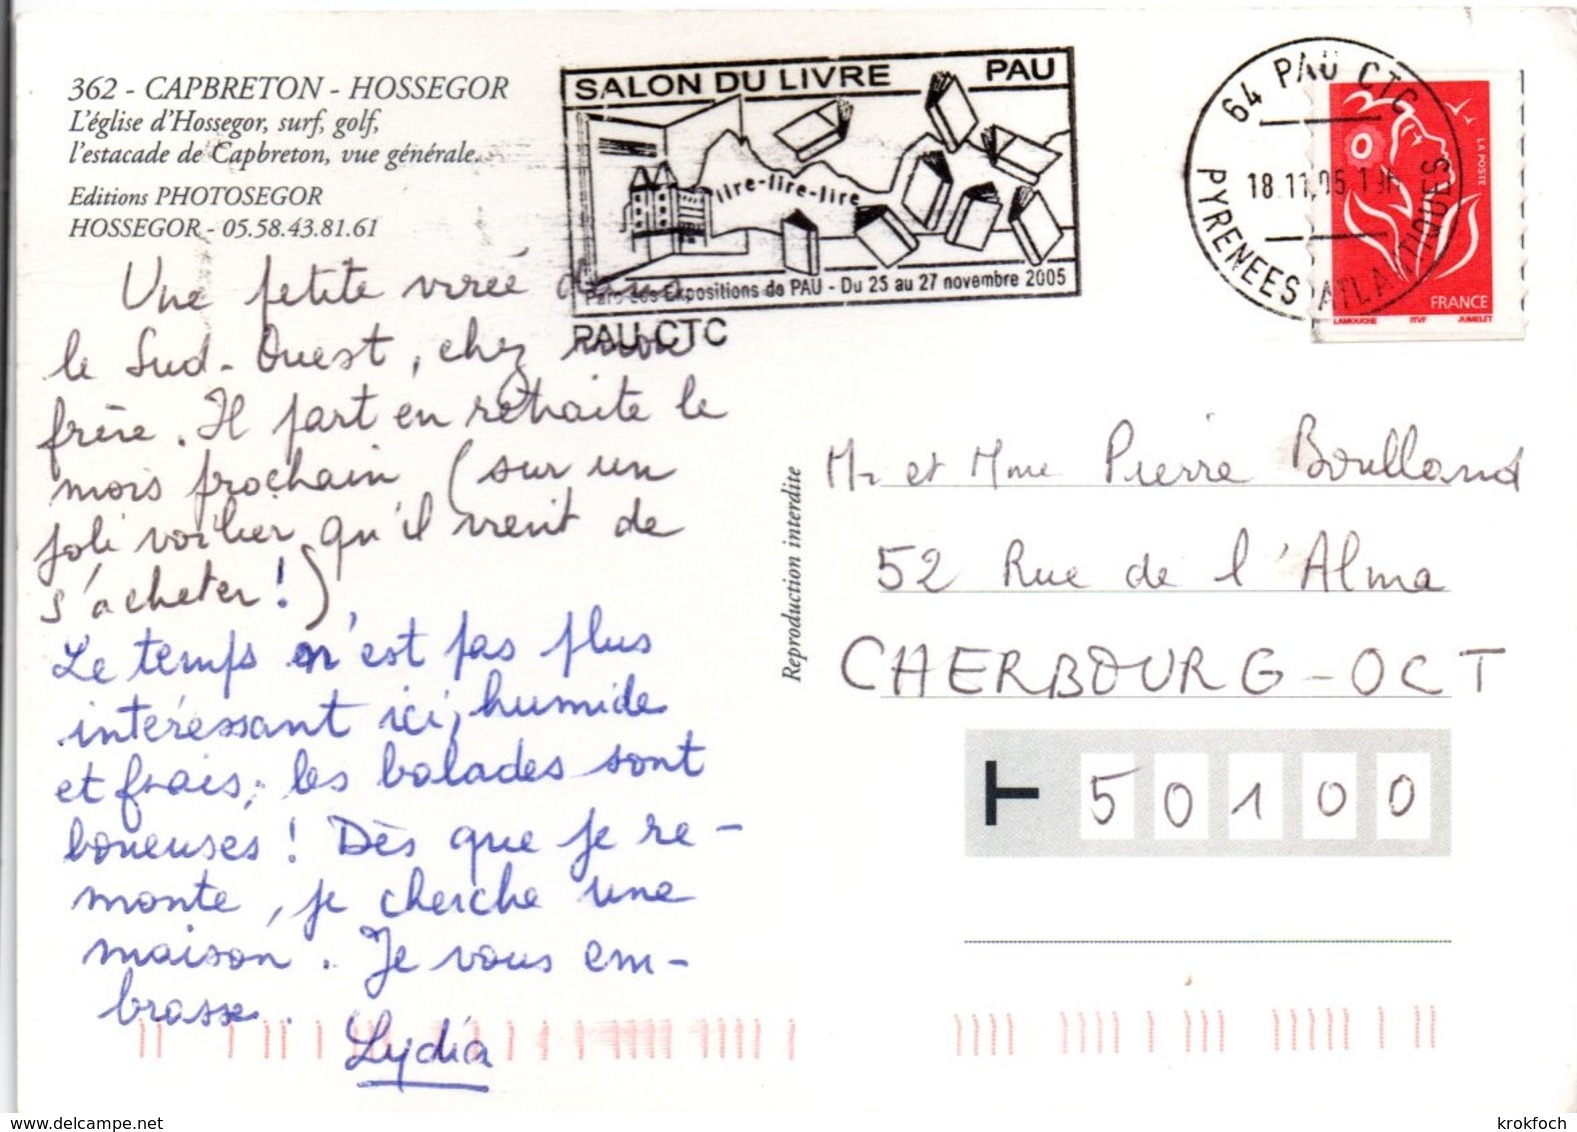 362 - CAPBRETON - HOSSEGOR
L'église d'Hossegor, surf, golf,
l'estacade de Capbreton, vue générale.
Editions PHOTOSEGOR
HOSSEGOR - 05.58.43.81.61
SALON DU LIVRE PAU
lire-lire-lire
Parc des Expositions de PAU - Du 25 au 27 novembre 2005
PAU CTC
64 PAU CTC
18.11.05 19H
PYRENEES ATLANTIQUES
LA POSTE
FRANCE
LAMOUCHE ITVF JUMELET
Une petite virée dans
le Sud-Ouest, chez mon
frère. Il part en retraite le
mois prochain (sur un
joli voilier qu'il vient de
s'acheter!)
Le temps n'est pas plus
intéressant ici, humide
et frais, les balades sont
boueuses! Dès que je re-
monte, je cherche une
maison. Je vous em-
brasse.
Lydia
Reproduction interdite
Mr et Mme Pierre Boulland
52 Rue de l'Alma
CHERBOURG-OCT
T 50100
www.delcampe.net
krokfoch